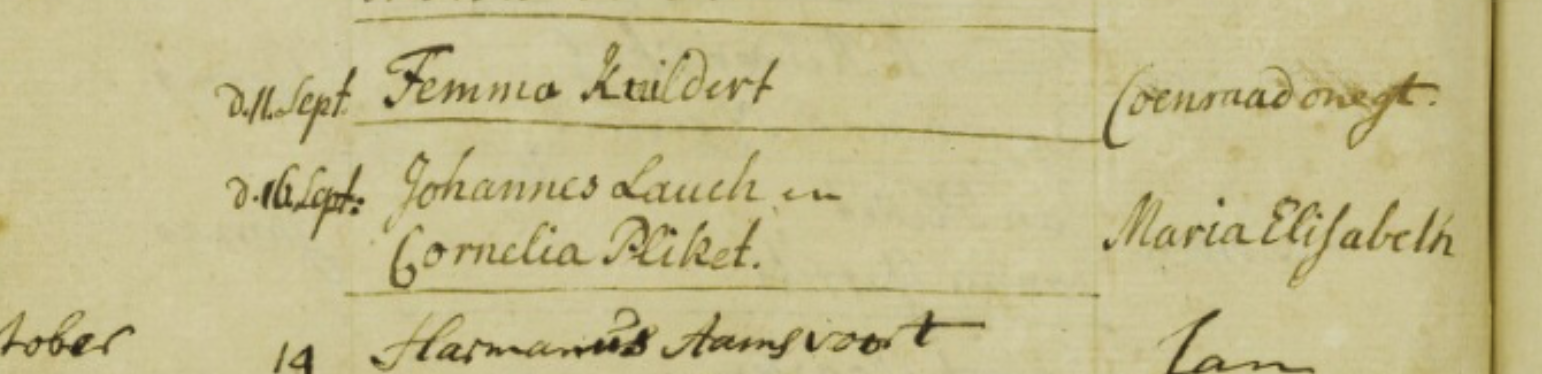 d. 11. Sept. Femma Knildert Coenraad onegt.
d. 16. Sept: Johannes Lauch en
Cornelia Pliket. Maria Elisabeth
tober 19 Harmanus Aamsvoort Jan